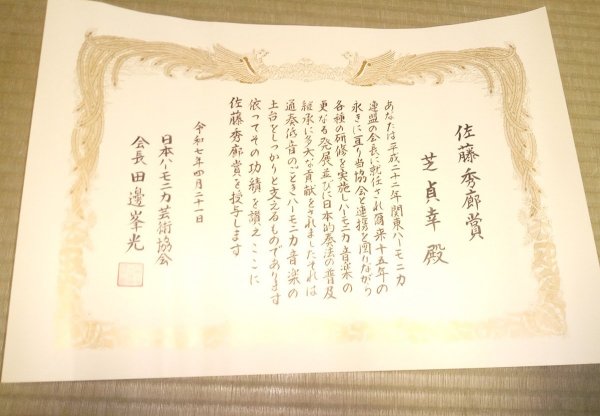 佐藤秀廊賞
芝貞幸 殿
あなたは平成二十二年関東ハーモニカ
連盟の会長に就任され爾来十五年の
永きに亘り当協会と連携を図りながら
各種の研修を実施しハーモニカ音楽の
更なる発展並びに日本的奏法の普及
継承に多大な貢献をされましたそれは
通奏低音のごときハーモニカ音楽の
土台をしっかりと支えるものであります
依ってその功績を讃えここに
佐藤秀廊賞を授与します
令和七年四月二十一日
日本ハーモニカ芸術協会
会長 田邊峯光